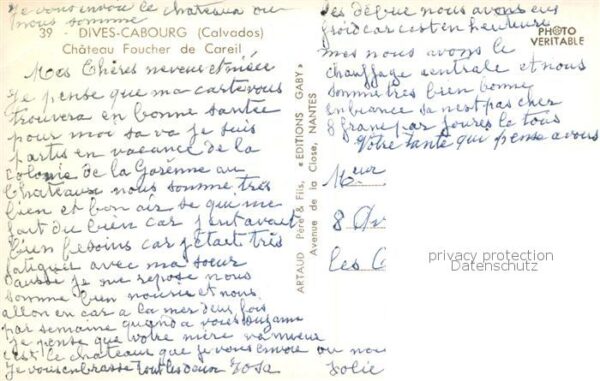 je vous envoi le chateaux ou
nous somme
39 - DIVES-CABOURG (Calvados)
Château Foucher de Careil
Mes Chères neveux et nièce
Je pense que ma carte vous
trouvera en bonne santée
pour moi sa va je suis
partis en vacance de la
colonie de la Garenne au
Chateaux nous somme très
bien et bon air se qui me
fait du bien car j'ent avait
bien besoins car j'était très
fatiguer avec ma soeur
aussi je me repose nous
somme bien nourie et nous
allon en car a la mer deux fois
par semaine quand a vous Suzanne
je pense que votre mère va mieux
c'est le chateaux que je vous envoie ou nou
Je vous enbrasse tout les deux Rosa
ARTAUD Père & Fils, « EDITIONS GABY »
Avenue de la Close, NANTES
PHOTO
VERITABLE
les début nous avons eus
froid car cest en heuteur
mes nous avons le
chauffage centrale et nous
somme très bien bonne
enbiance sa nest pas cher
8 franc par jours le tous
Votre tante qui pense a vous
Meur
8 Av
les C
privacy protection
Datenschutz
Jolie